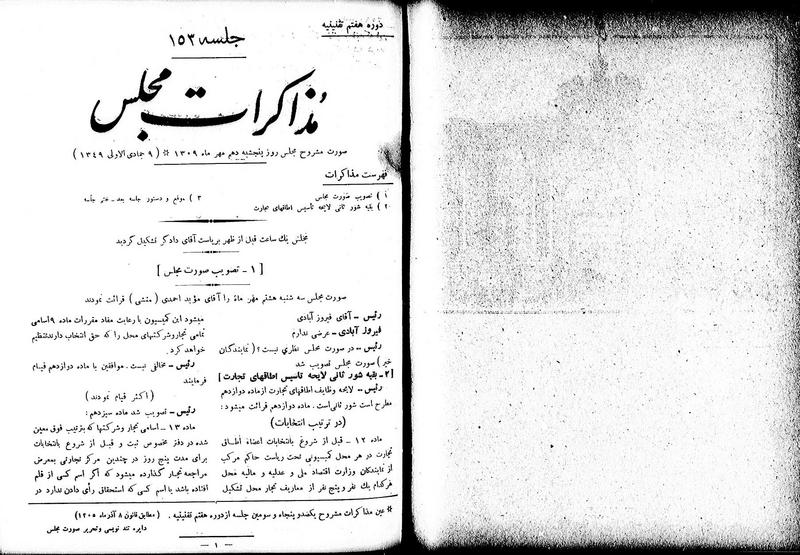 دوره هفتم تقنینیه
جلسه ۱۵۳
مذاکرات مجلس
صورت مشروح مجلس روز پنجشنبه دهم مهر ماه ۱۳۰۹ * ( ۹ جمادی الاولی ۱۳۴۹ )
فهرست مذاکرات
۱ ) تصویب صورت مجلس
۲ ) بقیه شور ثانی لایحه تأسیس اطاقهای تجارت
۳ ) موقع و دستور جلسه بعد ـ ختم جلسه
مجلس یك ساعت قبل از ظهر بریاست آقای دادگر تشکیل گردید
[ ۱ ـ تصویب صورت مجلس ]
صورت مجلس سه شنبه هشتم مهر ماه را آقای مؤید احمدی ( منشی ) قرائت نمودند
رئیس ـ آقای فیروز آبادی
فیروز آبادی ـ عرضی ندارم
رئیس ـ در صورت مجلس نظری نیست ؟ ( نمایندگان
خیر ) صورت مجلس تصویب شد
[ ۲ ـ بقیه شور ثانی لایحه تاسیس اطاقهای تجارت ]
رئیس ـ لایحه وظایف اطاقهای تجارت از ماده دوازدهم
مطرح است شور ثانی است . ماده دوازدهم قرائت میشود :
( در ترتیب انتخابات )
ماده ۱۲ ـ قبل از شروع بانتخابات اعضاء اطاق
تجارت در هر محل کمیسیونی تحت ریاست حاکم مرکب
از نمایندگان وزارت اقتصاد ملی و عدلیه و مالیه محل
هرکدام یك نفر و پنج نفر از معاریف تجار محل تشکیل
میشود این کمیسیون با رعایت مفاد مقررات ماده ۹ اسامی
تمامی تجار و شرکتهای محل را که حق انتخاب دارند تنظیم
خواهد کرد .
رئیس ـ مخالفی نیست . موافقین با ماده دوازدهم قیام
فرمایند
( اکثر قیام نمودند )
رئیس ـ تصویب شد ماده سیزدهم :
ماده ۱۳ ـ اسامی تجار و شرکتها که بترتیب فوق معین
شده در دفتر مخصوص ثبت و قبل از شروع بانتخابات
برای مدت پنج روز در چندین مرکز تجارتی بمعرض
مراجعه تجار گذارده میشود که اگر اسم کسی از قلم
افتاده باشد یا اسم کسی که استحقاق رأی دادن ندارد در
* عین مذاکرات مشروح یکصد و پنجاه و سومین جلسه از دوره هفتم تقنینیه . ( مطابق قانون ۸ آذر ماه ۱۳۰۵ )
دایره تند نویسی و تحریر صورت مجلس
ـ ۱ ـ